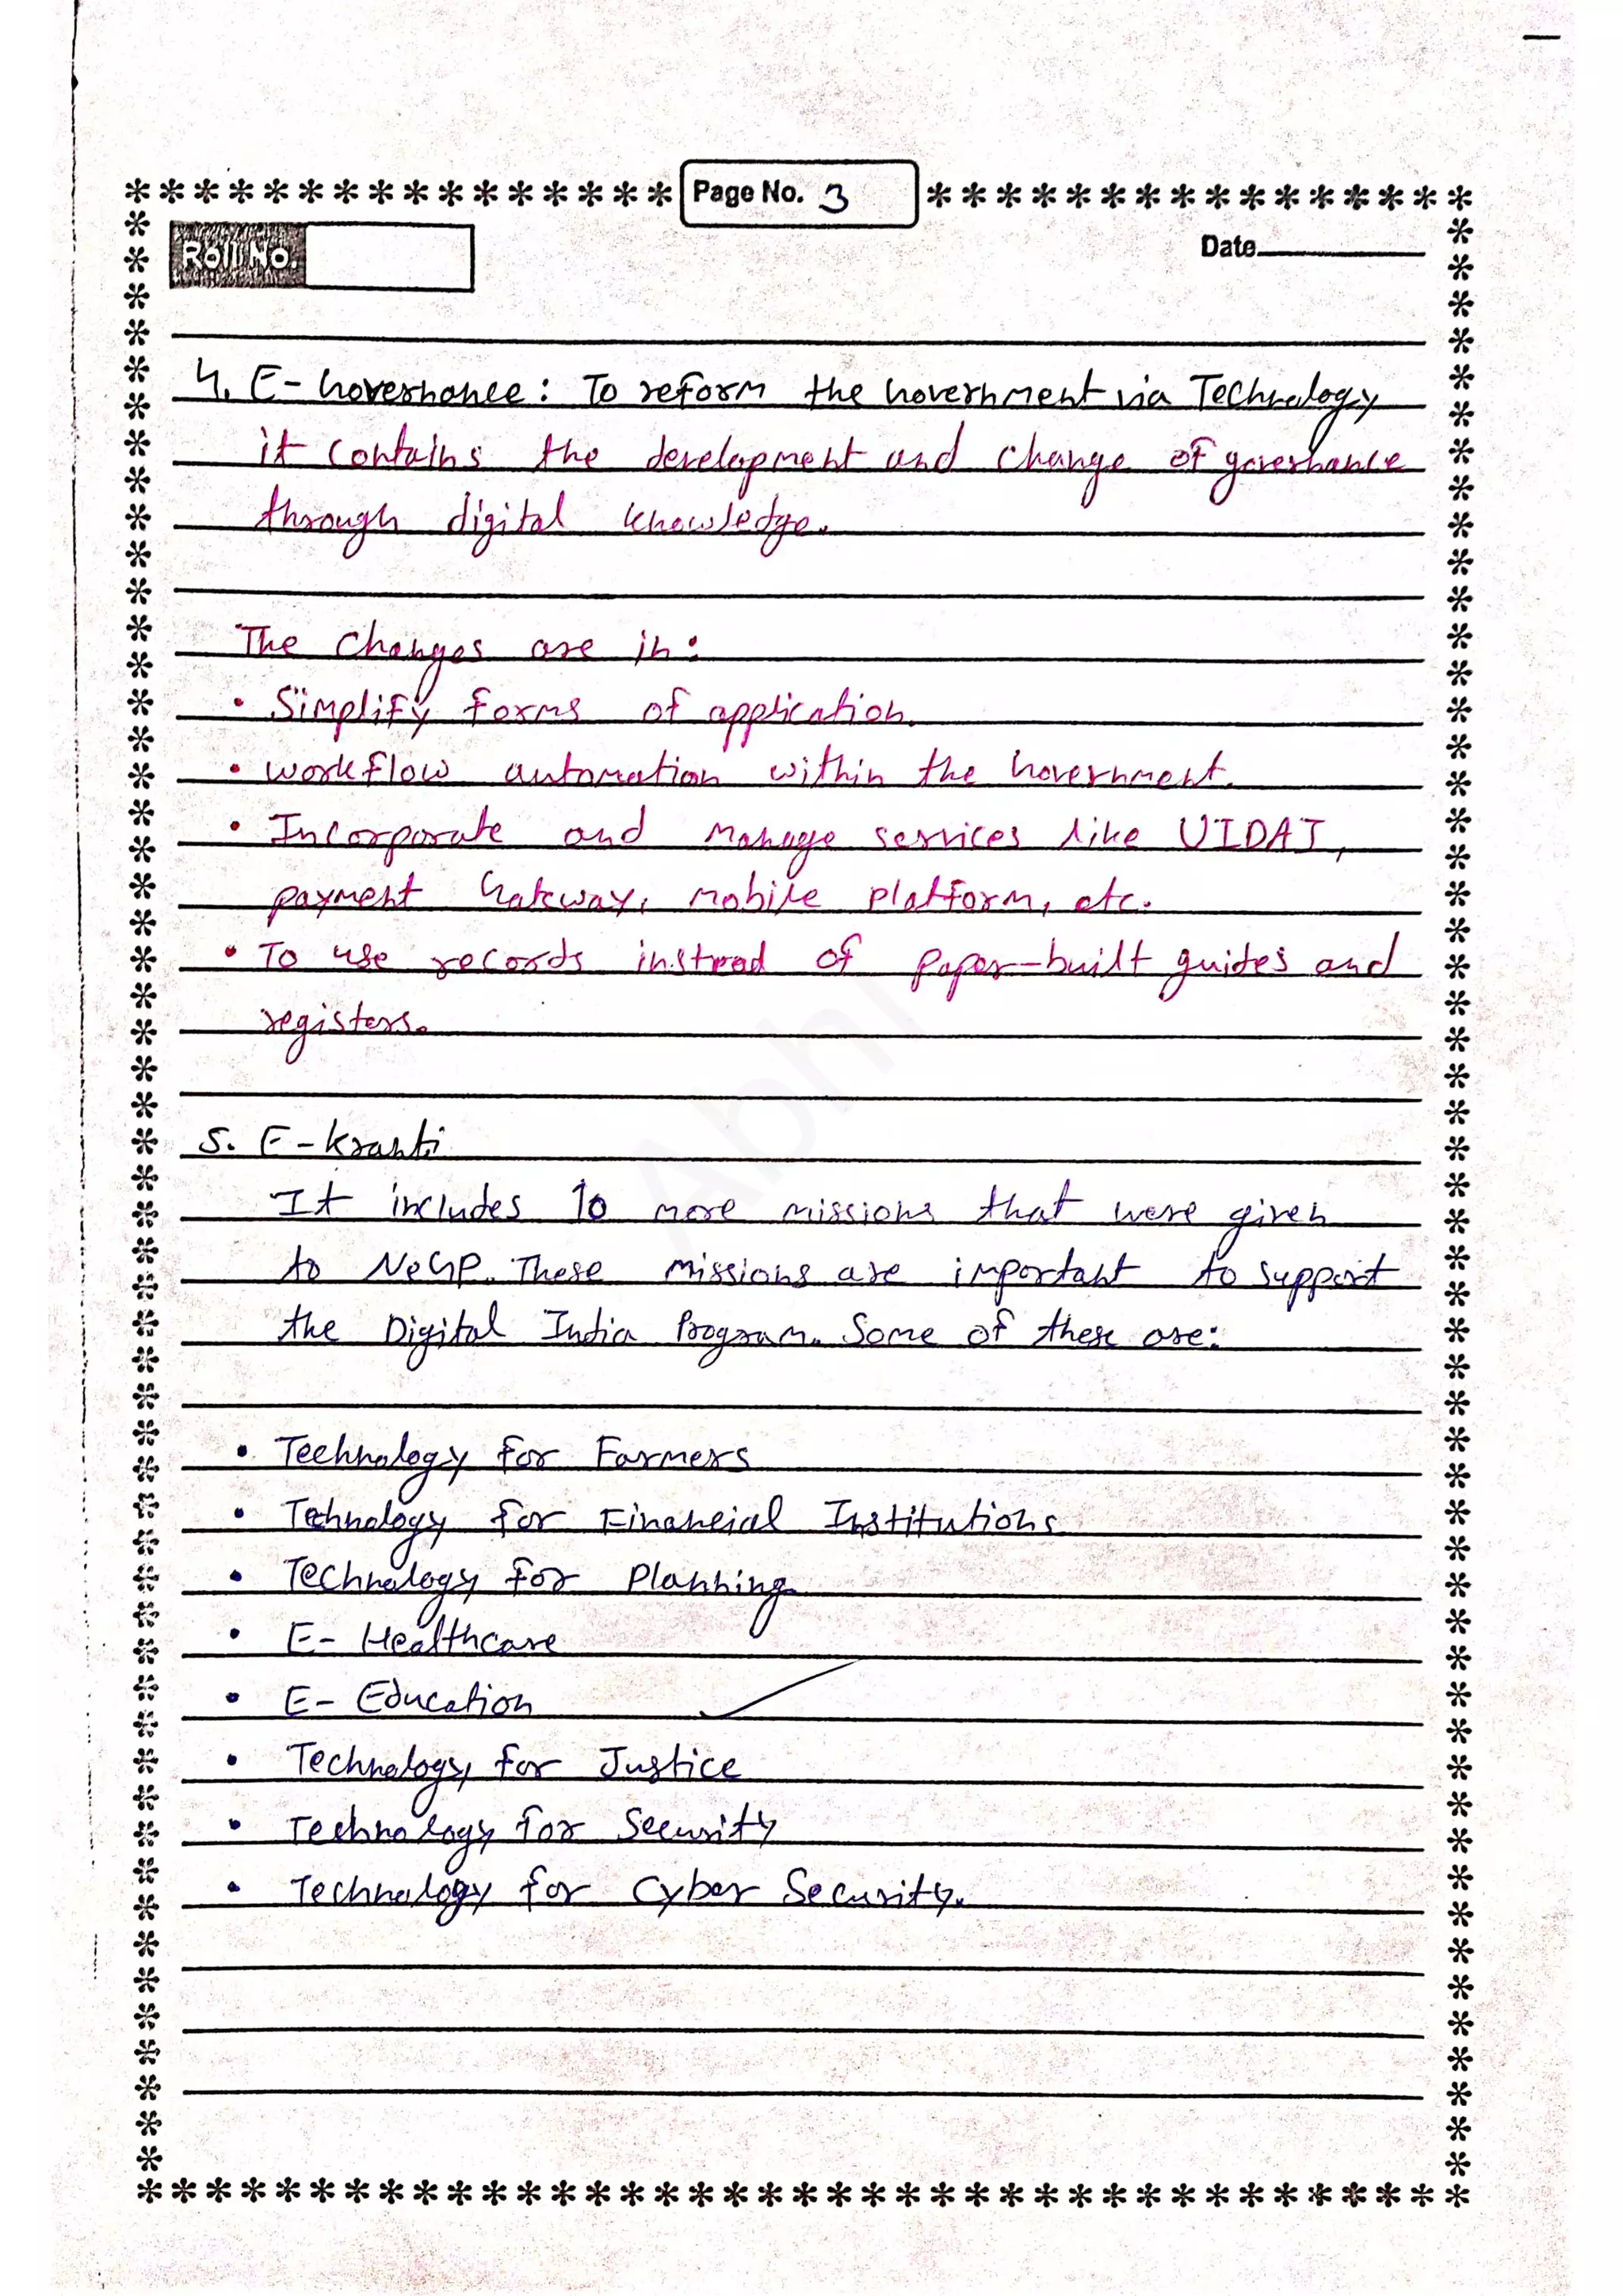 Page No. 3
Roll No.
Date
4. E-Governance: To reform the Government via Technology
it contains the development and change of governance
through digital knowledge.
The changes are in:
• Simplify forms of application.
• workflow automation within the Government.
• Incorporate and manage services like UIDAI,
payment Gateway, mobile platform, etc.
• To use records instead of paper-built guides and
registers.
5. E-kranti
It includes 10 more missions that were given
to NeGP. These missions are important to support
the Digital India Program. Some of these are:
• Technology for Farmers
• Technology for Financial Institutions
• Technology for Planning
• E- Healthcare
• E- Education
• Technology for Justice
• Technology for Security
• Technology for Cyber Security.
Abhi